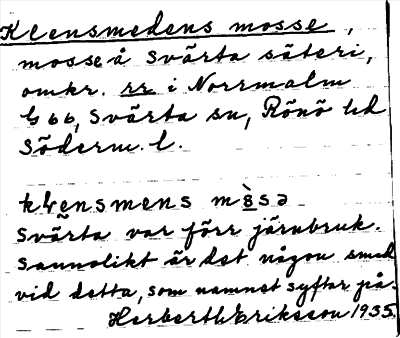 Klensmedens mosse,
mosse å Svärta säteri,
omkr. rr i Norrmalm
G 66, Svärta sn, Rönö hd
Söderm. l.
klensmens mòsə
Svärta var förr järnbruk.
Sannolikt är det någon smed
vid detta, som namnet syftar på.
Herbert Eriksson 1935.